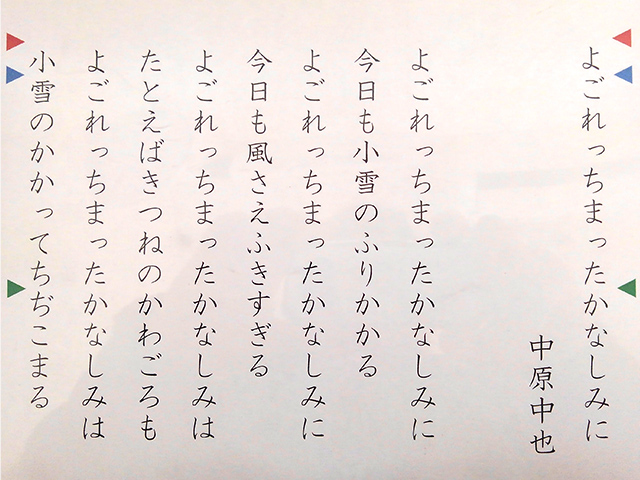 よごれっちまったかなしみに
中原中也
よごれっちまったかなしみに
今日も小雪のふりかかる
よごれっちまったかなしみに
今日も風さえふきすぎる
よごれっちまったかなしみは
たとえばきつねのかわごろも
よごれっちまったかなしみは
小雪のかかってちぢこまる